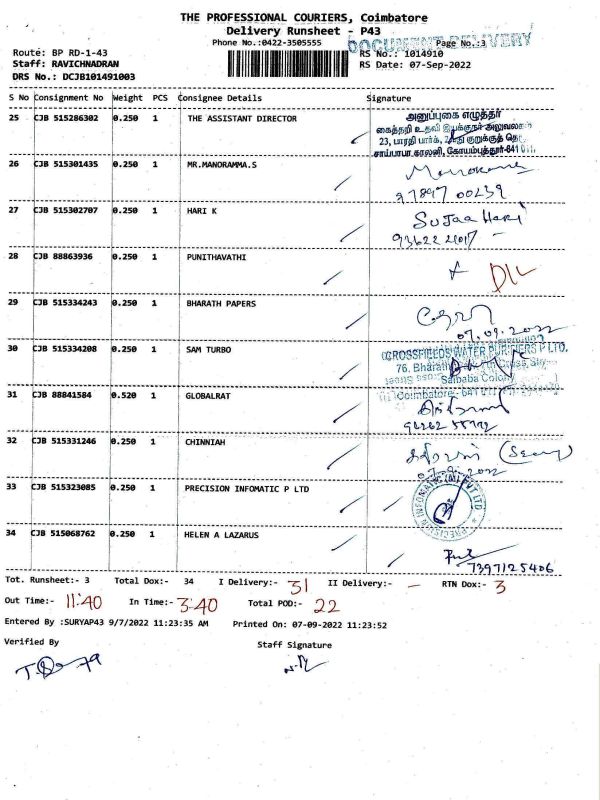 THE PROFESSIONAL COURIERS, Coimbatore
Delivery Runsheet - P43
Phone No.:0422-3505555
DOCUMENT DELIVERY
Page No.:3
Route: BP RD-1-43
RS No.: 1014910
Staff: RAVICHNADRAN
RS Date: 07-Sep-2022
DRS No.: DCJB101491003
S No Consignment No Weight PCS Consignee Details Signature
25 CJB 515286302 0.250 1 THE ASSISTANT DIRECTOR
அனுப்புகை எழுத்தர்
கைத்தறி உதவி இயக்குநர் அலுவலகம்
23, பாரதி பார்க், குறுக்குத் தெ
சாய்பாபா காலனி, கோயம்புத்தூர்-641 011.
26 CJB 515301435 0.250 1 MR.MANORAMMA.S
27 CJB 515302707 0.250 1 HARI K
Sujaa Hari
28 CJB 88863936 0.250 1 PUNITHAVATHI
29 CJB 515334243 0.250 1 BHARATH PAPERS
07.09.2022
30 CJB 515334208 0.250 1 SAM TURBO
CROSSFIELDS WATER PURIFIERS P LTD.
76, Bharathi Cross
Saibaba Colony
Coimbatore - 641 011
31 CJB 88841584 0.520 1 GLOBALRAT
32 CJB 515331246 0.250 1 CHINNIAH
33 CJB 515323085 0.250 1 PRECISION INFOMATIC P LTD
PRECISION INFOMATIC (M) PVT LTD
34 CJB 515068762 0.250 1 HELEN A LAZARUS
7397125406
Tot. Runsheet:- 3 Total Dox:- 34 I Delivery:- 31 II Delivery:- - RTN Dox:- 3
Out Time:- 11:40 In Time:- 3:40 Total POD:- 22
Entered By :SURYAP43 9/7/2022 11:23:35 AM Printed On: 07-09-2022 11:23:52
Verified By
Staff Signature